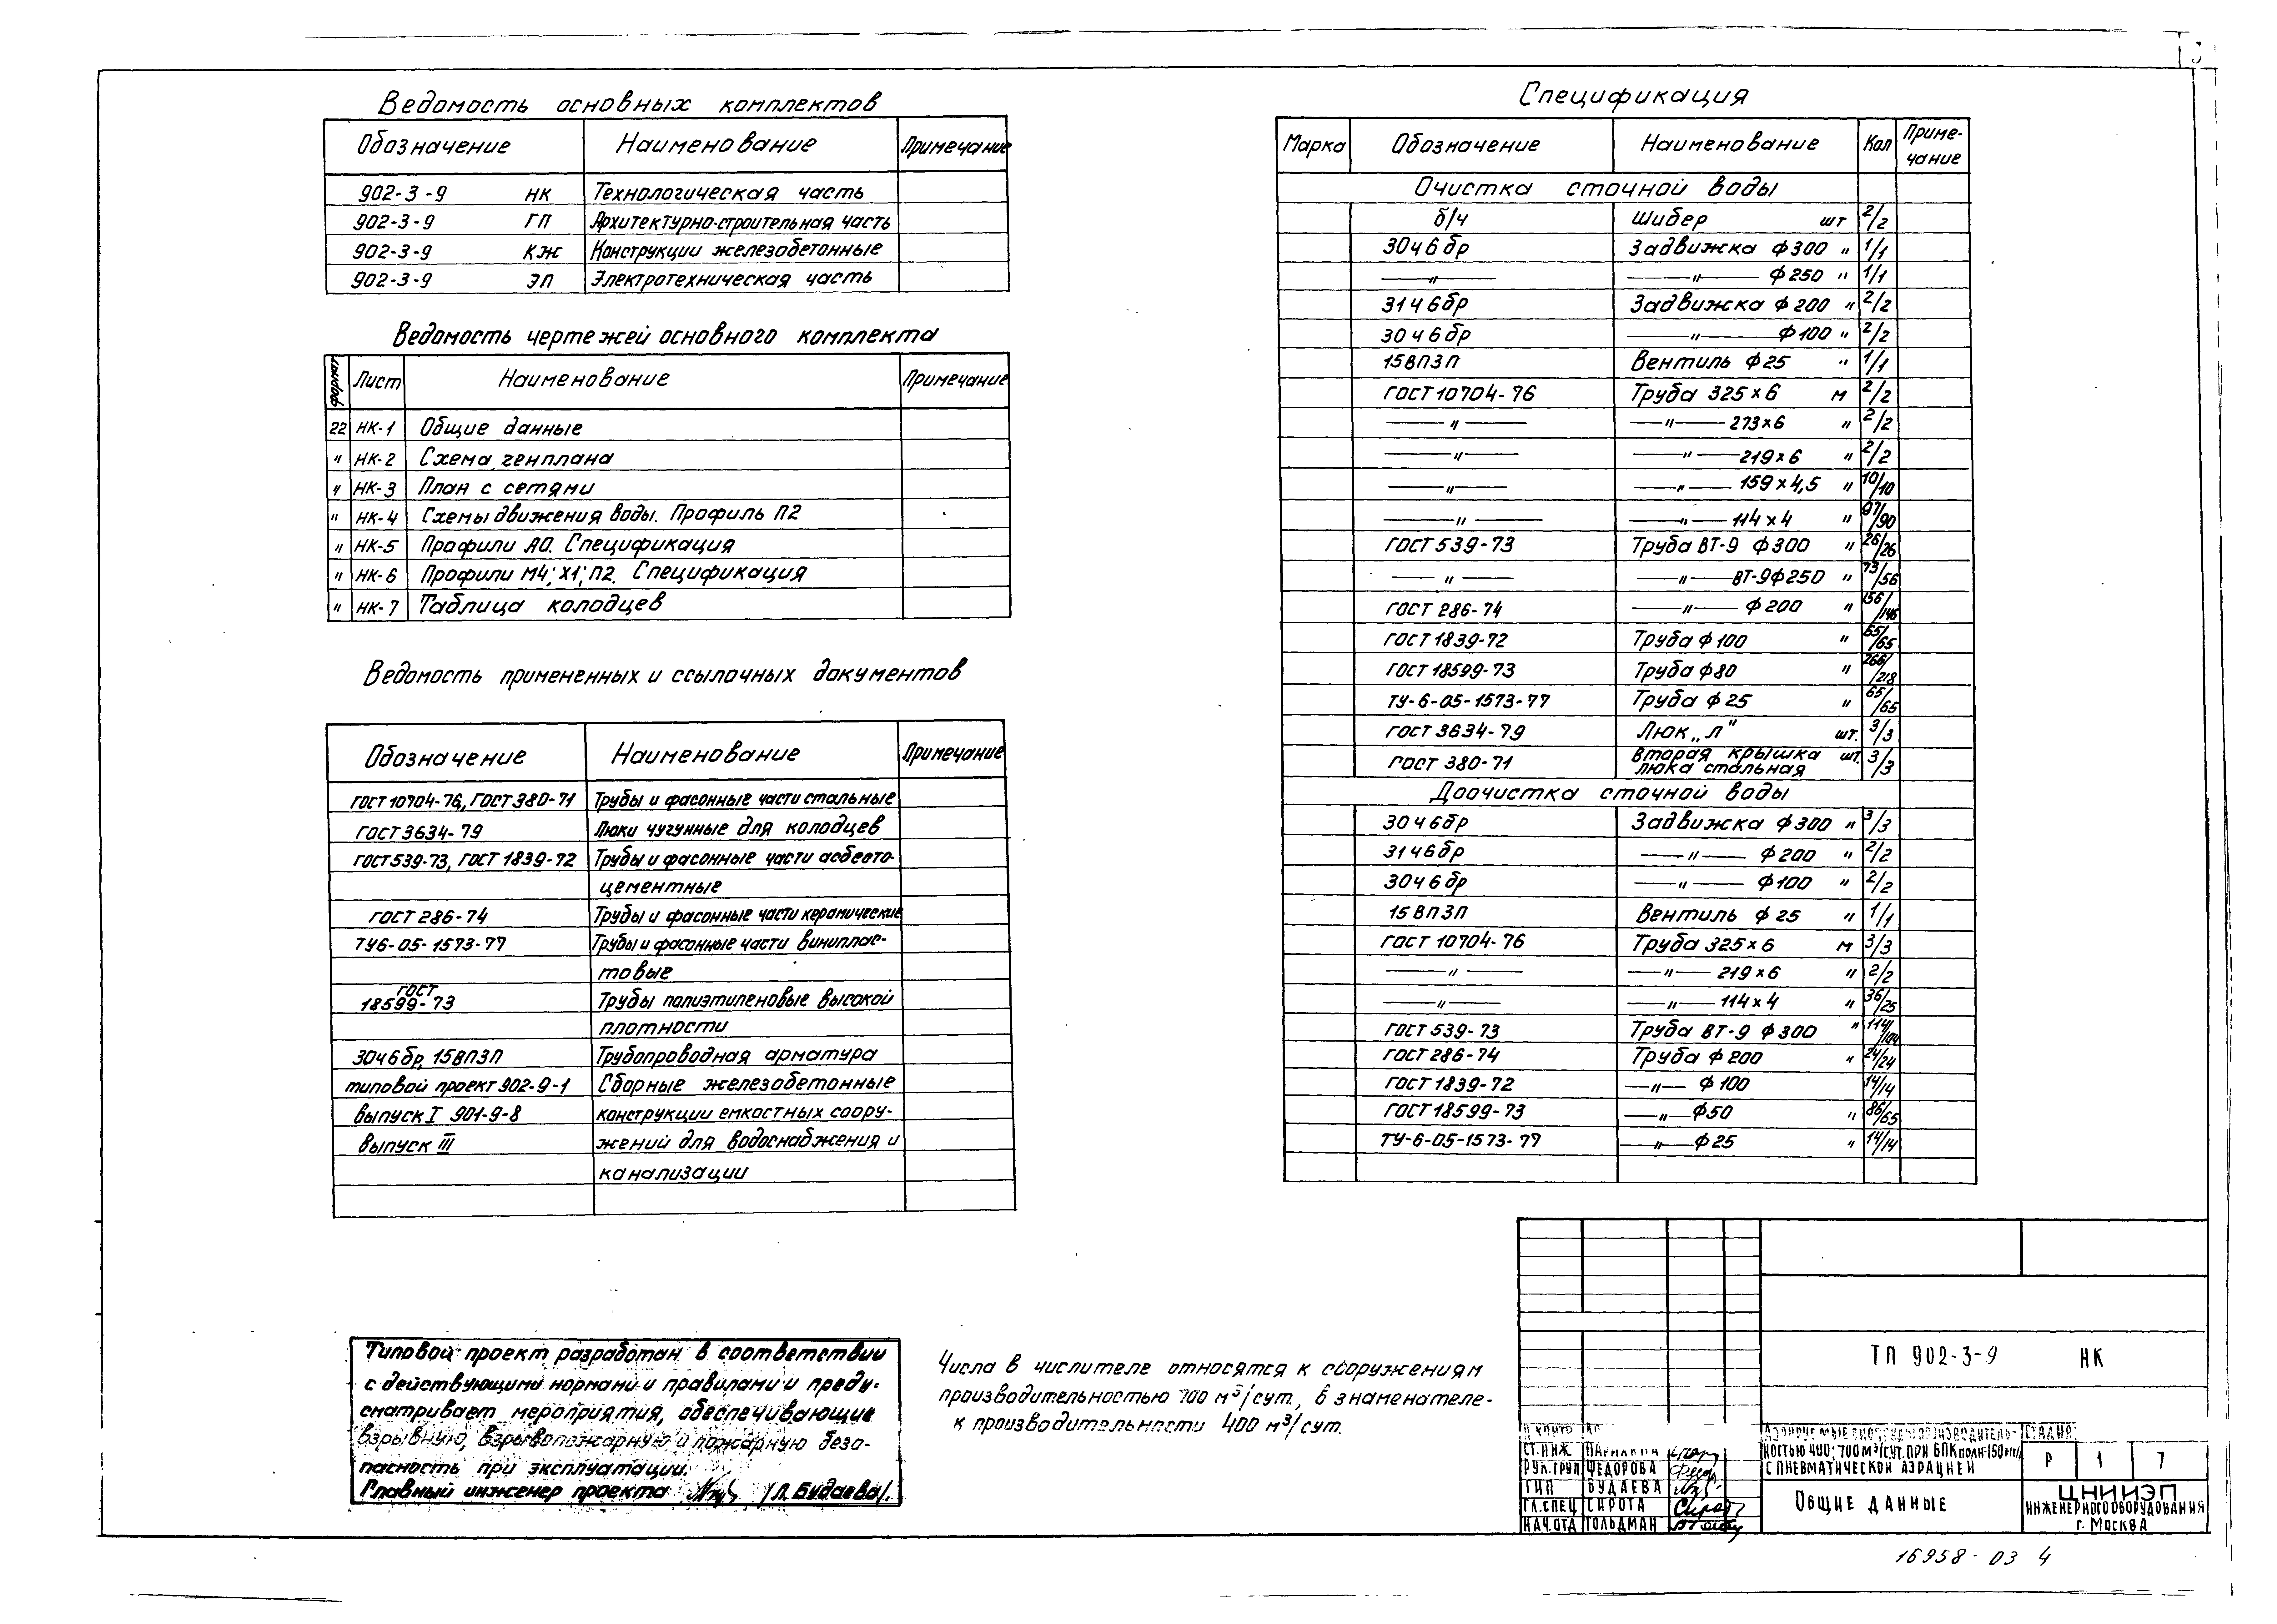 Ведомость основных комплектов
Обозначение Наименование Примечание
902-3-9 НК Технологическая часть
902-3-9 ГП Архитектурно-строительная часть
902-3-9 КЖ Конструкции железобетонные
902-3-9 ЭП Электротехническая часть
Ведомость чертежей основного комплекта
формат Лист Наименование Примечание
22 НК-1 Общие данные
" НК-2 Схема генплана
" НК-3 План с сетями
" НК-4 Схемы движения воды. Профиль П2
" НК-5 Профили АО. Спецификация
" НК-6 Профили М4; Х1; П2. Спецификация
" НК-7 Таблица колодцев
Ведомость примененных и ссылочных документов
Обозначение Наименование Примечание
ГОСТ 10704-76, ГОСТ 380-71 Трубы и фасонные части стальные
ГОСТ 3634-79 Люки чугунные для колодцев
ГОСТ 539-73, ГОСТ 1839-72 Трубы и фасонные части асбесто-
цементные
ГОСТ 286-74 Трубы и фасонные части керамические
ТУ6-05-1573-77 Трубы и фасонные части виниплас-
товые
ГОСТ
18599-73 Трубы полиэтиленовые высокой
плотности
30ч6бр, 15ВП3П Трубопроводная арматура
типовой проект 902-9-1 Сборные железобетонные
выпуск I 901-9-8 конструкции емкостных соору-
выпуск III жений для водоснабжения и
канализации
Типовой проект разработан в соответствии
с действующими нормами и правилами и преду-
сматривает мероприятия, обеспечивающие
взрывную, взрывопожарную и пожарную безо-
пасность при эксплуатации.
Главный инженер проекта /Л. Будаева/.
Числа в числителе относятся к сооружениям
производительностью 700 м³/сут., в знаменателе-
к производительности 400 м³/сут.
Спецификация
Марка Обозначение Наименование Кол Приме-
чание
Очистка сточной воды
б/ч Шибер шт 2/2
30ч6бр Задвижка ф300 " 1/1
—"— —"— ф250 " 1/1
31ч6бр Задвижка ф200 " 2/2
30ч6бр —"— ф100 " 2/2
15ВП3П Вентиль ф25 " 1/1
ГОСТ 10704-76 Труба 325×6 м 2/2
—"— —"— 273×6 " 2/2
—"— —"— 219×6 " 2/2
—"— —"— 159×4,5 " 10/10
—"— —"— 114×4 " 97/90
ГОСТ 539-73 Труба ВТ-9 ф300 " 26/26
—"— —"— ВТ-9ф250 " 73/56
ГОСТ 286-74 —"— ф200 " 156/146
ГОСТ 1839-72 Труба ф100 " 65/65
ГОСТ 18599-73 Труба ф80 " 266/218
ТУ-6-05-1573-77 Труба ф25 " 65/65
ГОСТ 3634-79 Люк „Л" шт. 3/3
ГОСТ 380-71 вторая крышка шт. 3/3
люка стальная
Доочистка сточной воды
30ч6бр Задвижка ф300 " 3/3
31ч6бр —"— ф200 " 2/2
30ч6бр —"— ф100 " 2/2
15ВП3П Вентиль ф25 " 1/1
ГОСТ 10704-76 Труба 325×6 м 3/3
—"— —"— 219×6 " 2/2
—"— —"— 114×4 " 36/25
ГОСТ 539-73 Труба ВТ-9 ф300 " 114/104
ГОСТ 286-74 Труба ф200 " 24/24
ГОСТ 1839-72 —"— ф100 14/14
ГОСТ 18599-73 —"— ф50 " 86/65
ТУ-6-05-1573-77 —"— ф25 " 14/14
ТП 902-3-9 НК
Н КОНТР
СТ.ИНЖ
РУК.ГРУП ФЕДОРОВА
ГИП БУДАЕВА
ГЛ.СПЕЦ СИРОТА
НАЧ.ОТД ГОЛЬДМАН
НОСТЬЮ 400; 700 М³/СУТ. ПРИ БПК ПОЛН-150
С ПНЕВМАТИЧЕСКОЙ АЭРАЦИЕЙ
Р 1 7
ОБЩИЕ ДАННЫЕ
ЦНИИЭП
ИНЖЕНЕРНОГО ОБОРУДОВАНИЯ
г. МОСКВА
16958-03 4